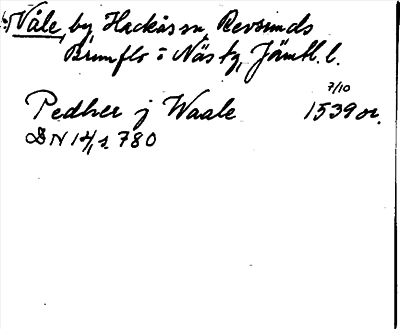 Våle, by, Hackås sn, Revsunds
Brunflo o Näs tg, Jämtl. l.
7/10
Pedher j Waale 1539 or.
DN 14, s. 780